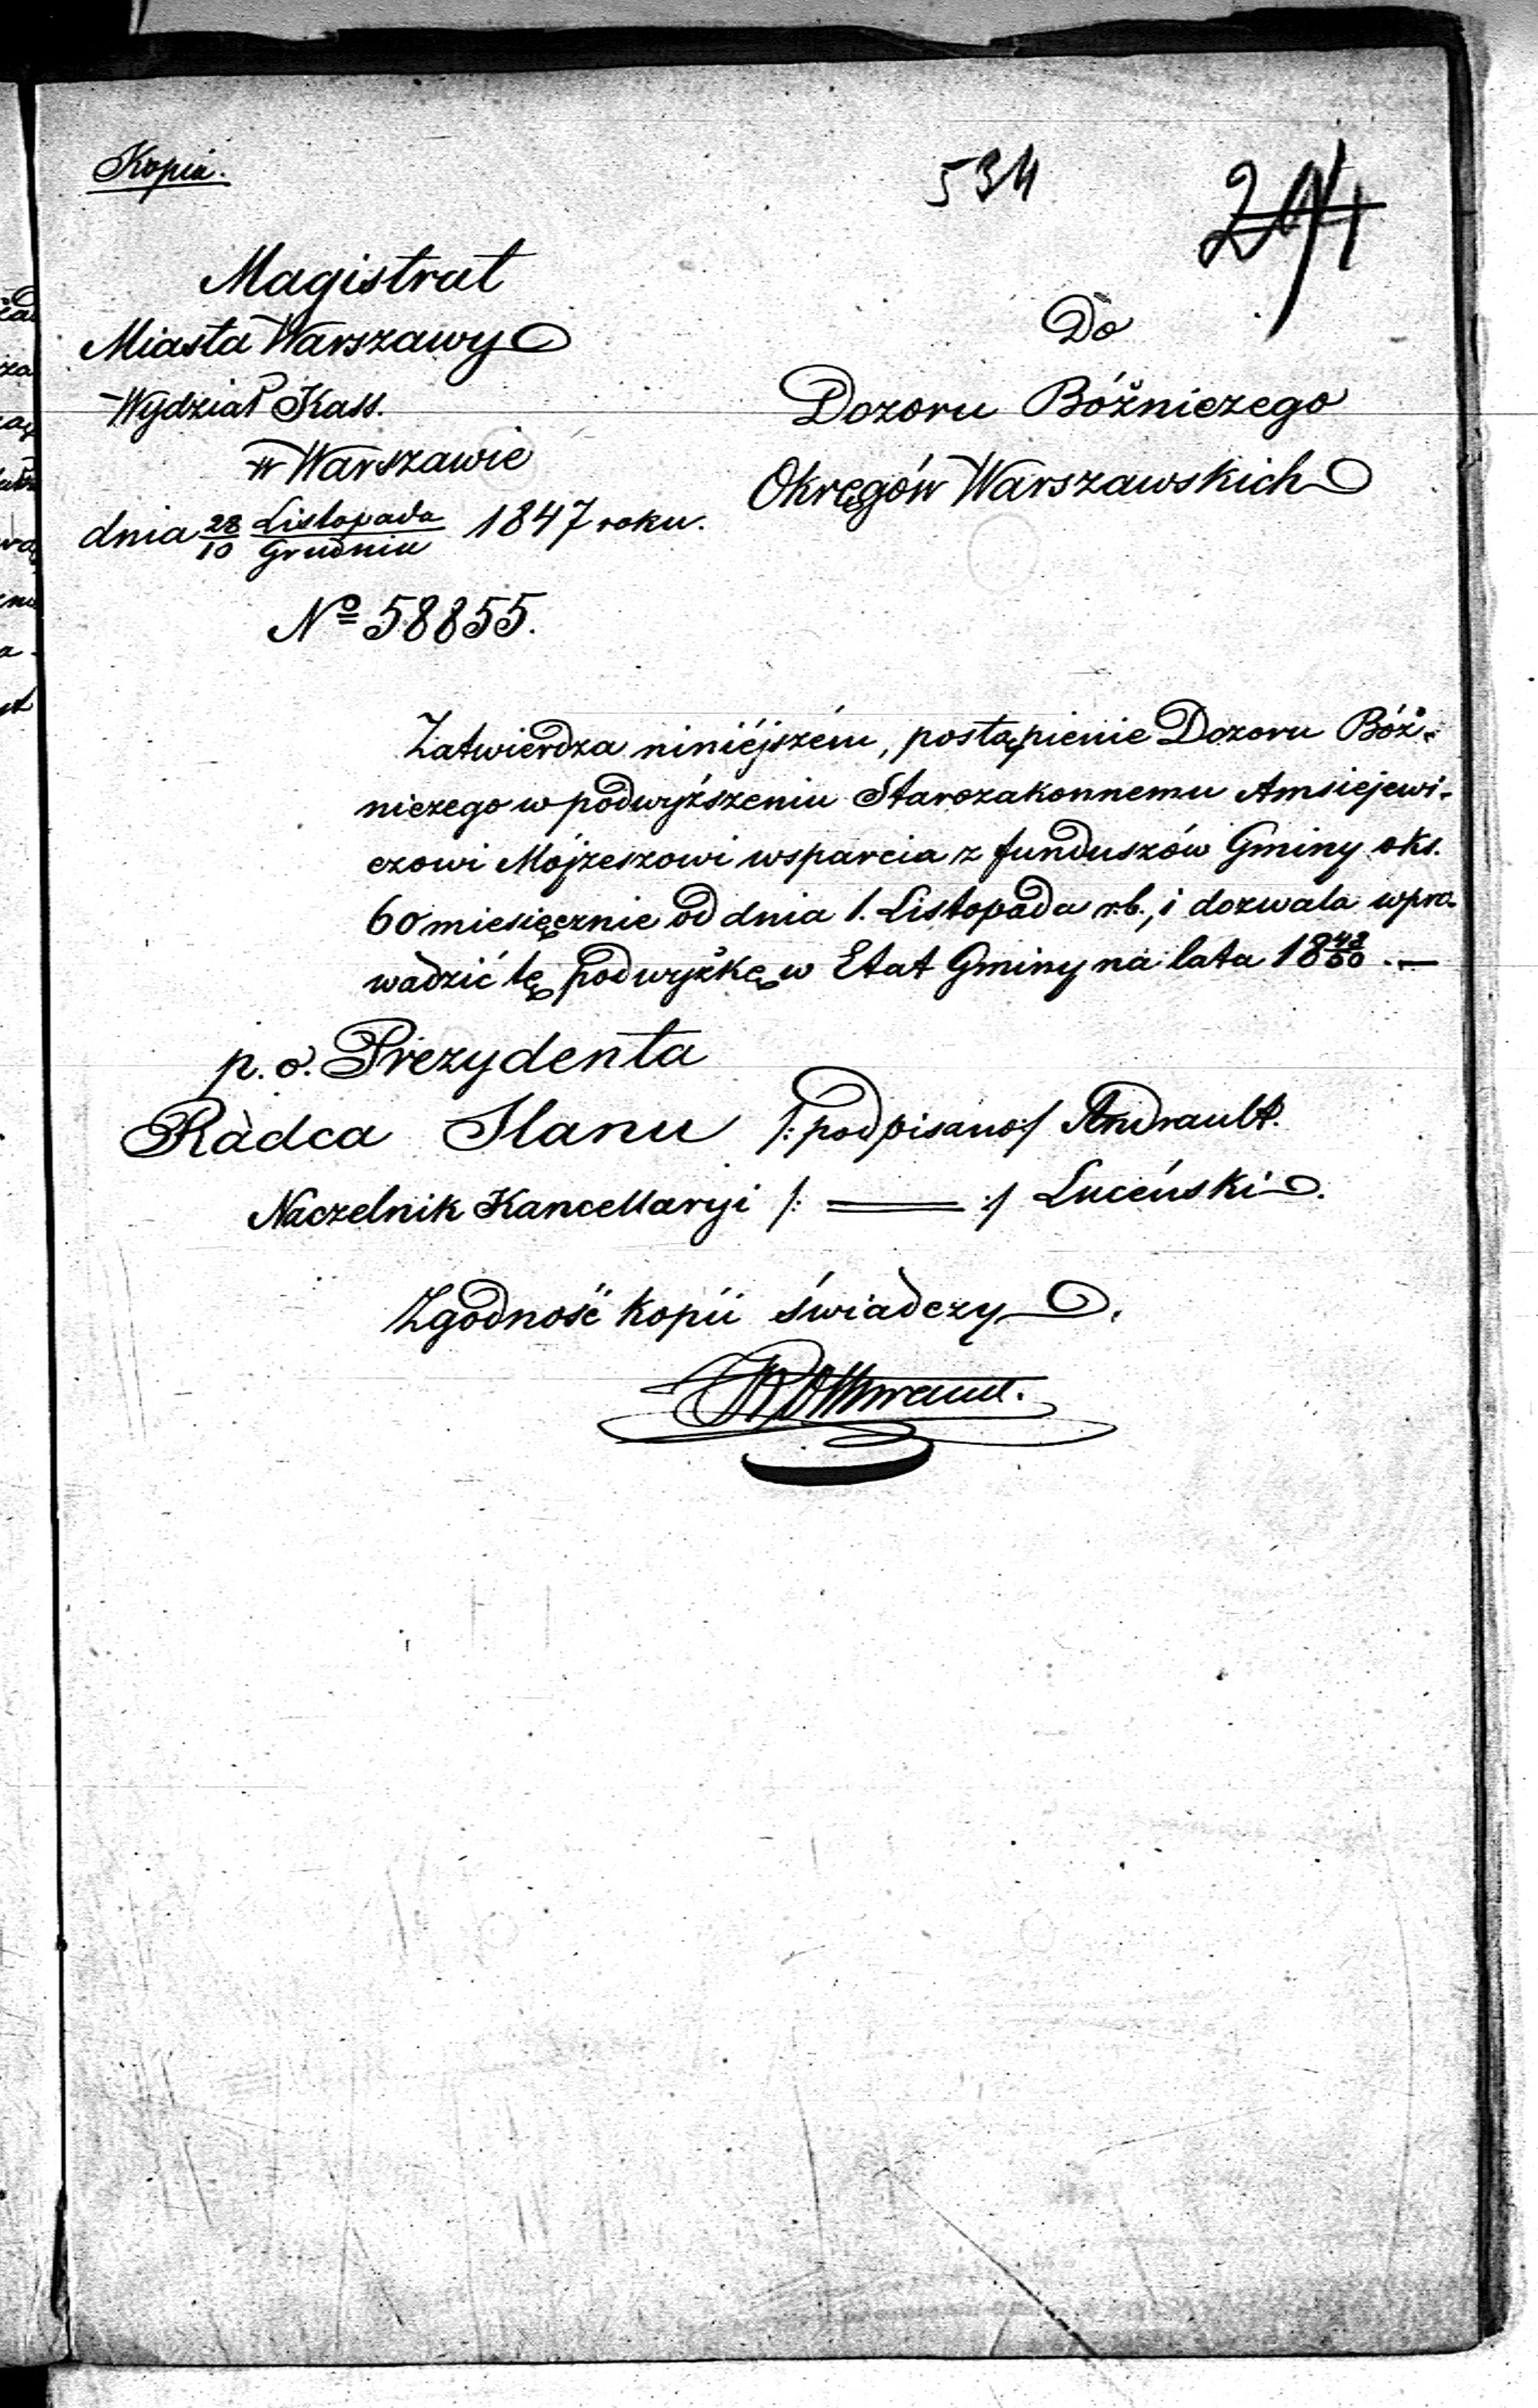 Kopia.
534
Magistrat
Miasta Warszawy
Wydział Kass.
w Warszawie
dnia 28/10 Listopada/Grudnia 1847 roku.
Nº 58855.
Do
Dozoru Bóźniczego
Okręgów Warszawskich
Zatwierdza niniéjszém, postąpienie Dozoru Bóź-
niczego w podwyższeniu Starozakonnemu Amsiejewi-
czowi Mojżeszowi wsparcia z funduszów Gminy o ks.
60 miesięcznie od dnia 1. Listopada r.b., i dozwala wpro-
wadzić tę podwyżkę w Etat Gminy na lata 18 48/50 . —
p. o. Prezydenta
Radca Stanu /: podpisano :/ Andrault.
Naczelnik Kancellaryi /: = :/ Luceński.
Zgodność kopii świadczy